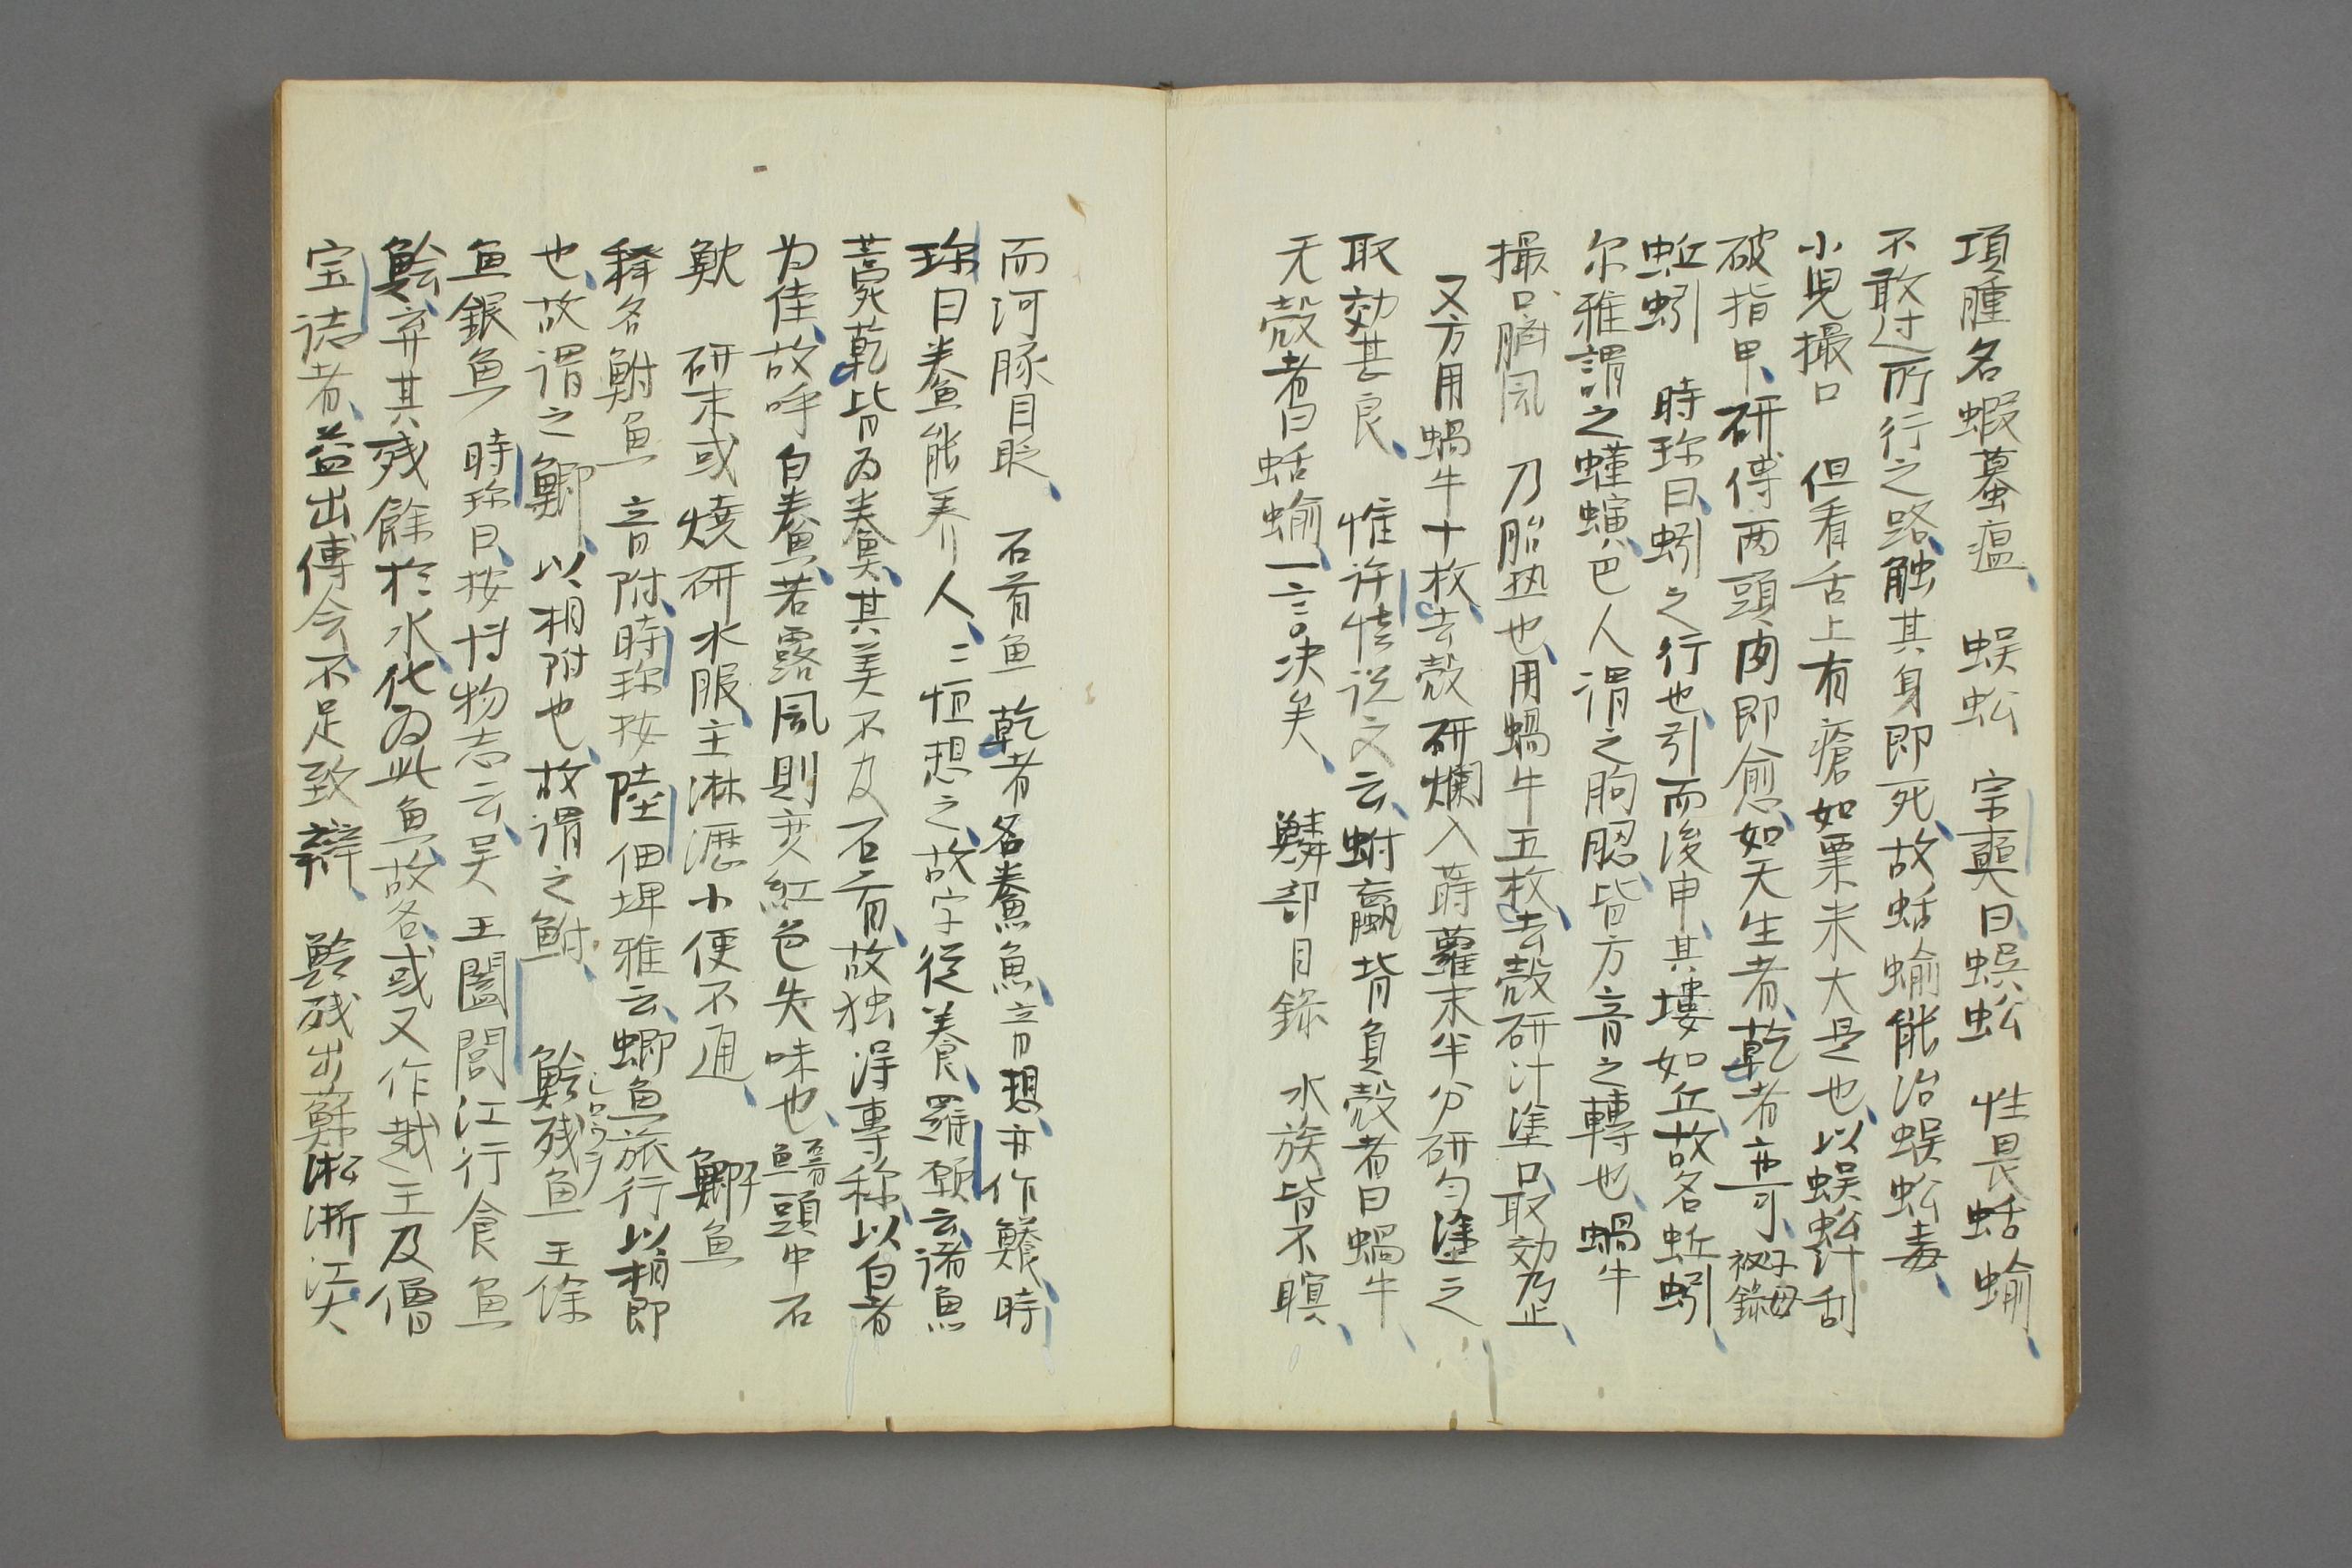 項腫名蝦蟇瘟、　蜈蚣　宗奭曰、蜈蚣　性畏蛞蝓、
不敢过所行之路、触其身即死、故蛞蝓能治蜈蚣毒、
小児撮口　但看舌上有瘡如粟米大是也、以蜈蚣汁刮
破指甲、研傅两頭肉即愈、如天生者、乾者亦可、子母秘録
蚯蚓　時珍曰、蚓之行也、引而後申、其塿如丘、故名蚯蚓、
尔雅謂之螼螾、巴人謂之朐䏰、皆方音之轉也、蝸牛
撮口臍風　乃胎热也、用蝸牛五枚、去殻研汁塗口、取効乃止、
又方用蝸牛十枚、去殻研爛入蒔蘿末半分研匀塗之
取効甚良、　惟許慎説文云、蚹蠃背負殻者曰蝸牛、
无殻者曰蛞蝓、一言决矣、　鱗部目録　水族皆不瞑、
而河豚目眨、　石首魚　乾者名鯗魚、音想、亦作鱶、時
珍曰鯗能养人、〻恒想之、故字從養、羅願云、諸魚
薧乾皆为鯗、其美不及石首、故独得專称、以白者
为佳、故呼白鯗、若露風則变紅色失味也、魚首頭中石
鮸　研末或燒研水服、主淋瀝小便不通、　鯽魚
释名鮒魚　音附、時珍按陸佃埤雅云、鯽魚旅行、以相即
也、故謂之鯽、以相附也、故謂之鮒、　鱠残魚シロウヲ　王余
魚銀魚　時珍曰、按博物志云、吴王闔閭江行食魚
鱠、弃其残餘於水、化为此魚、故名、或又作越王及僧
宝誌者、益出傅会不足致辯、　鱠残出蘇淞浙江、大